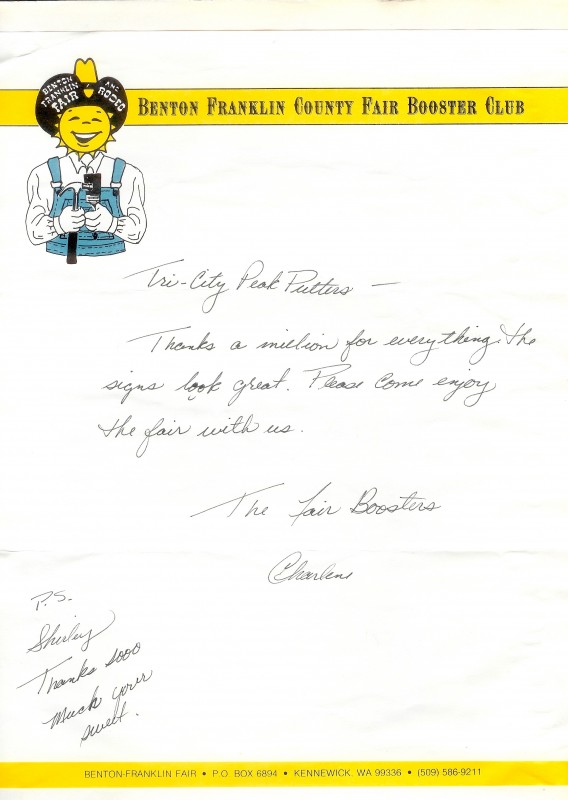 BENTON FRANKLIN FAIR AND RODEO
BENTON FRANKLIN COUNTY FAIR BOOSTER CLUB
Tri-City Peak Putters —
Thanks a million for everything. The
signs look great. Please come enjoy
the fair with us.
The Fair Boosters
Charlene
P.S.
Shirley
Thanks sooo
much your
swell.
BENTON-FRANKLIN FAIR • P.O. BOX 6894 • KENNEWICK, WA 99336 • (509) 586-9211